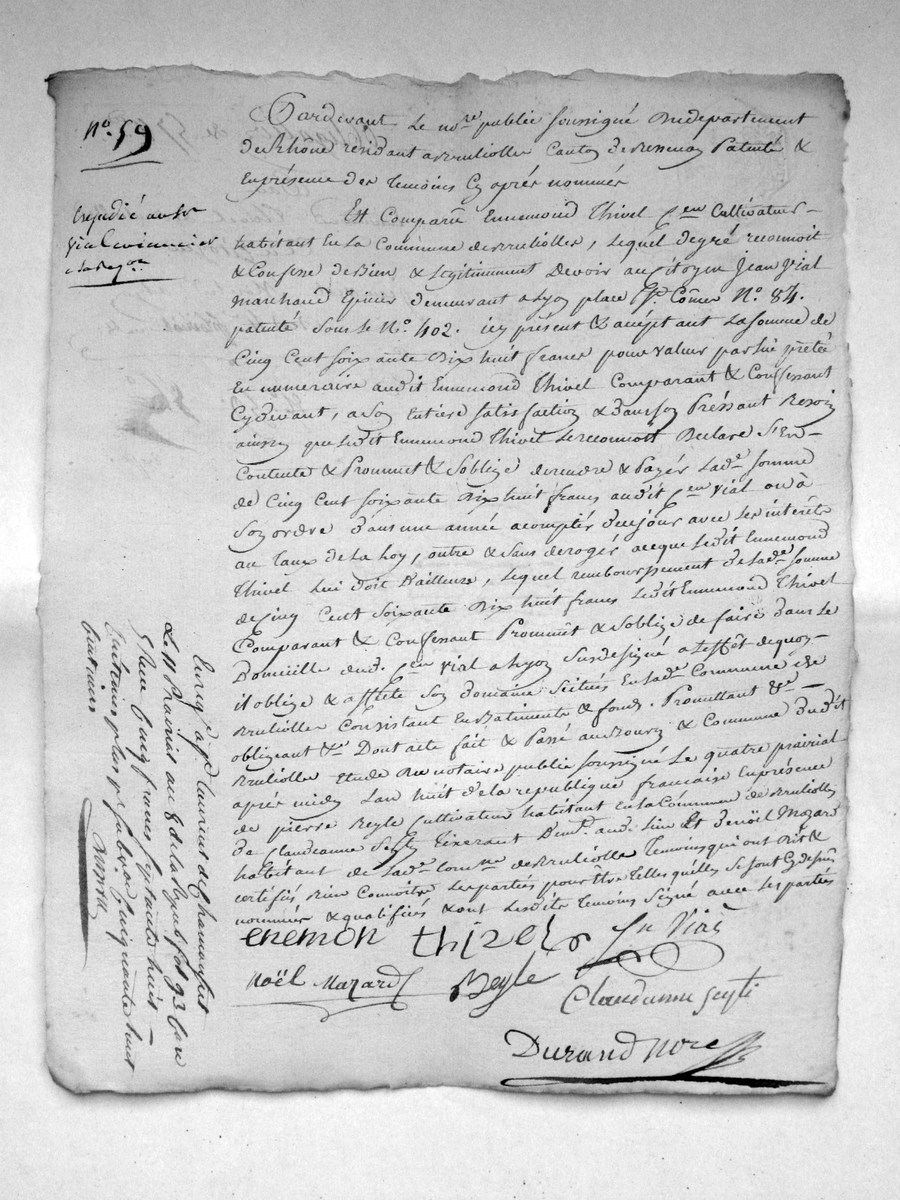 N° 59
Expédié au Sr
Vial créancier
Pardevant Le nore public soussigné Au departement
du Rhône résidant a Brulliolle Canton de Bessenay Patenté &
En présence des Temoins Cy aprés nommés
Est Comparu Ennemond Thivel Cen Cultivateur
habitant En La Commune de Brulliolles, Lequel de gré reconnoit
& Confesse de Bien & Legitimement Devoir au Citoyen Jean Vial
Marchand Epicier demeurant a Lyon place St Côme N° 84.
patenté Sous le N° 402. icy présent & acceptant La somme de
Cinq Cent Soixante Dix huit francs pour valeur par lui pretée
En numeraire audit Ennemond Thivel Comparant & Confessant
Cy divant, a Son Entiere Satisfaction & dans son Préssant Besoin
ainsy que Ledit Ennemond Thivel Le reconnoit Declare S'En
Contente & Prommet & S'oblige de rendre & Payér Lade Somme
de Cinq Cent Soixante Dix huit francs audit Cen Vial ou à
Son ordre dans une année a comptér de ce jour avec Les intérêts
au Taux de La Loy, outre & Sans deroger a ce que Ledit Ennemond
Thivel Lui doit D'ailleurs, Lequel remboursement de Lade Somme
de Cinq Cent Soixante Dix huit francs Ledit Ennemond Thivel
Comparant & Confessant Prommet & S'oblige de faire dans Le
Domicille dud. Cen Vial a Lyon Susdesigné a L'effet de quoy
il oblige & affecte Son domaine Scitués En Lade Commune de
Brulliolle Consistant En Batiments & fonds. Promettant &c
obligeant &c Dont acte fait & Passé au Bourg & Commune Dudit
Brulliolle Etude Du notaire public soussigné Le quatre prairial
aprés midy L'an huit de la republique francaise En présence
de pierre Beyle Cultivateur habitant En La Commune de Brulliolles
De Claudeanne Seytz Tixerant Demt. aud. Lieu Et De Noël Mazard
habitant de Lade Comne de Brulliolle Temoins qui ont Dit &
certifiés Bien Connoitre Les parties pour Être telles qu'elles Se Sont Cy dessus
nommés & qualifiés & ont Lesdits temoins Signé avec Les parties
enemon thivel Jn Vial
Noël Mazard Beyle Claudeanne Seytz
Durand Nore
Enreg. à St Laurent de Chamousset
Le 11 Prairial an 8 de la Repub. fol 93
Reçu Cinq francs Septante huit
Centimes plus pr Subvon Cinquante huit
Centimes